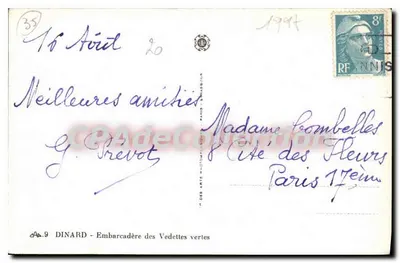 35
1997
16 Août
20
8F
RF
Meilleures amitiés
G. Prévot
Madame Combelles
8 Cité des Fleurs
Paris 17ème
9 DINARD - Embarcadère des Vedettes vertes